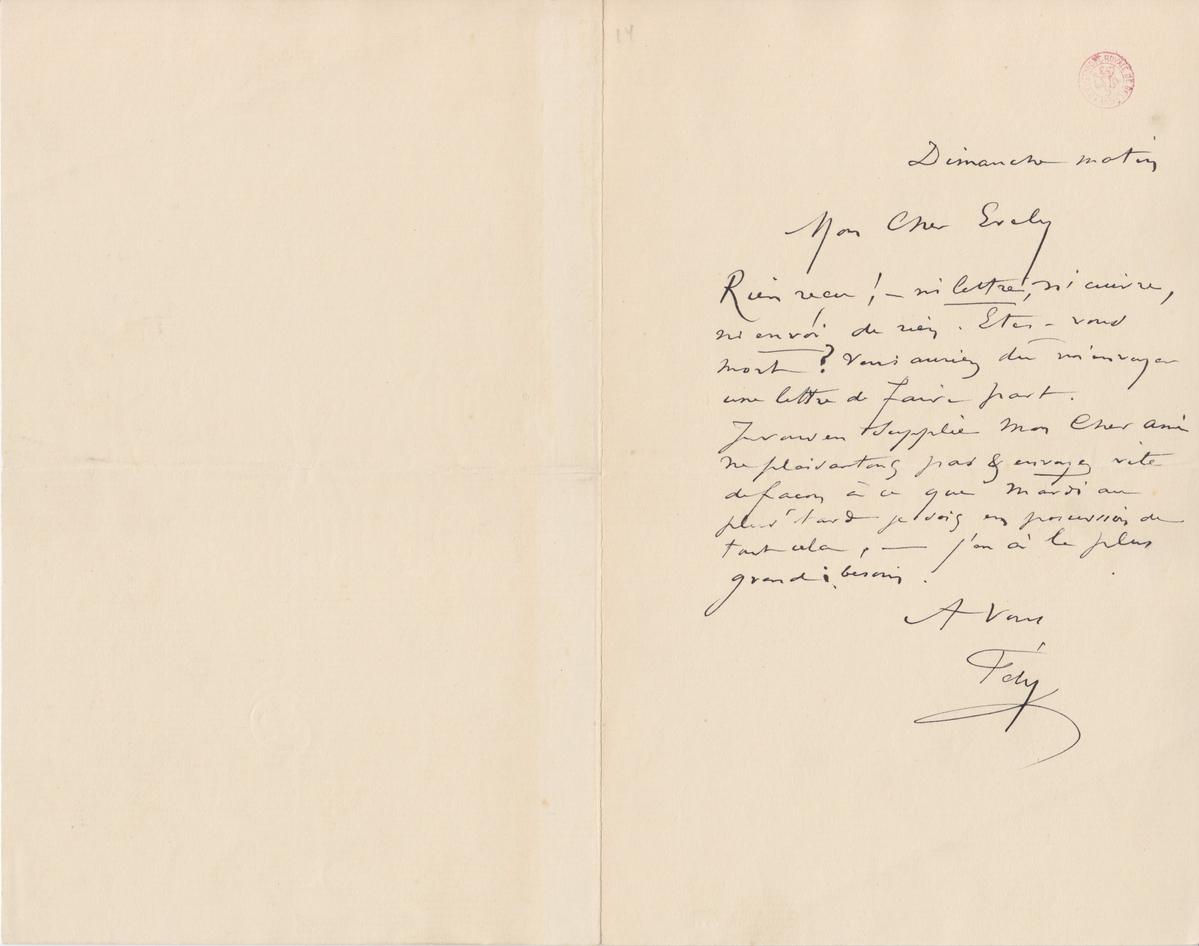 14
Dimanche matin
Mon Cher Evely
Rien reçu ! – ni lettre, ni cuivre,
ni envoi de rien. Etes-vous
mort ? Vous auriez dû m'envoyer
une lettre de faire part.
Je vous en supplie Mon Cher ami
ne plaisantons pas & envoyez vite
de façon à ce que Mardi au
plus tard je sois en possession de
tout cela, — j'en ai le plus
grand besoin.
A Vous
Fély